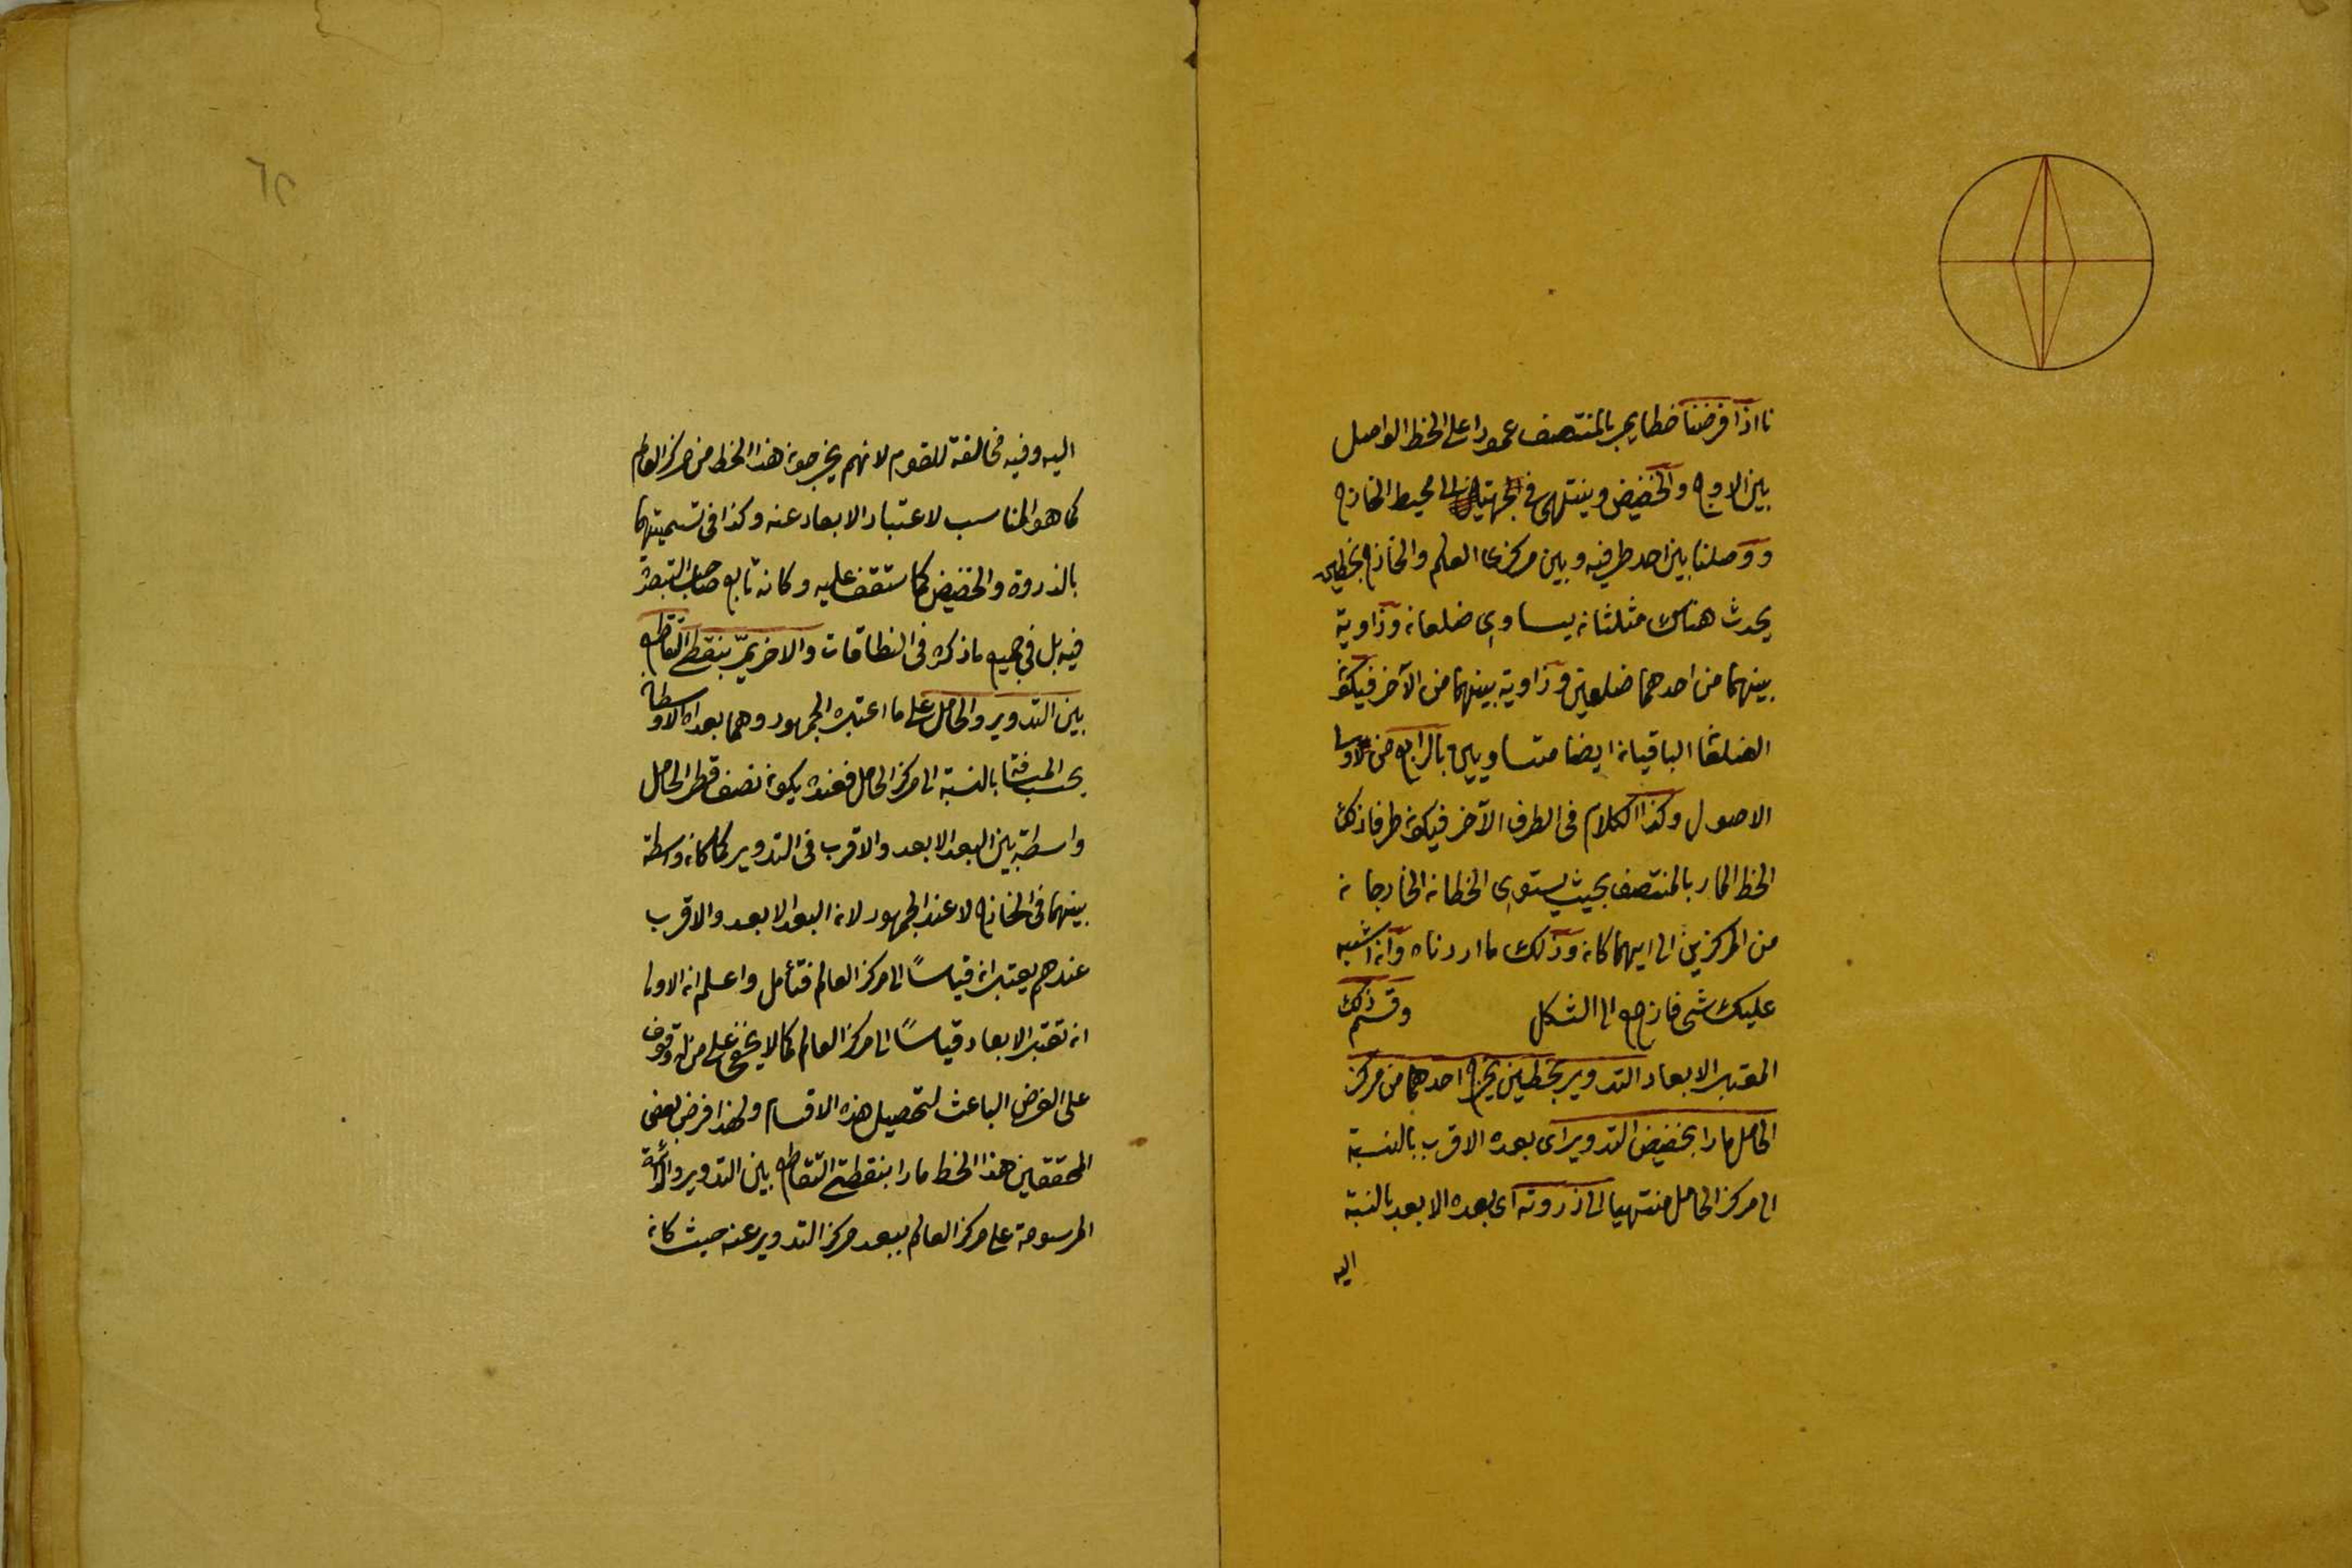 نا اذا فرضنا خطا يمر بالمنتصف عمودا على الخط الواصل
بين الاوج والحضيض وينتهى فى الجهتين الى محيط الخارج
ووصلنا بين احد طرفيه وبين مركزى العالم والخارج بخطين
يحدث هناك مثلثان يساوى ضلعان وزاوية
بينهما من احدهما ضلعين وزاوية بينهما من الآخر فيكون
الضلعان الباقيان ايضا متساويين بالرابع من اولى
الاصول وكذا الكلام فى الطرف الآخر فيكون طرفا ذلك
الخط المار بالمنتصف بحيث يستوى الخطان الخارجان
من المركزين الى ايهما كان وذلك ما اردناه وان اشتبه
عليك شى فارجع الى الشكل وقسم ذلك
المعتبر الابعاد التدوير بخطين يخرج احدهما من مركز
الحامل مارا بحضيض التدوير اى بعده الاقرب بالنسبة
الى مركز الحامل منتهيا الى ذروته اى بعده الابعد بالنسبة
اليه
اليه وفيه مخالفة للقوم لانهم يخرجون هذا الخط من مركز العالم
كما هو المناسب لاعتبار الابعاد عنه وكذا فى تسميتهما
بالذروة والحضيض كما ستقف عليه وكانه تابع صاحب التبصرة
فيه بل فى جميع ما ذكره فى النطاقات والاخر يمر بنقطتى التقاطع
بين التدوير والحامل على ما اعتبره الجمهور وهما بعداه الاوسطان
بحسب المسافة بالنسبة الى مركز الحامل فعنده يكون نصف قطر الحامل
واسطة بين البعد الابعد والاقرب فى التدوير كما كان واسطة
بينهما فى الخارج لا عند الجمهور لان البعد الابعد والاقرب
عندهم يعتبران قياسًا الى مركز العالم فتأمل واعلم ان الاولى
ان تعتبر الابعاد قياسًا الى مركز العالم كما لا يخفى على من له وقوف
على الغرض الباعث لتحصيل هذه الاقسام ولهذا فرض بعض
المحققين هذا الخط مارا بنقطتى التقاطع بين التدوير والدائرة
المرسومة على مركز العالم ببعد مركز التدوير عنه حيث كان